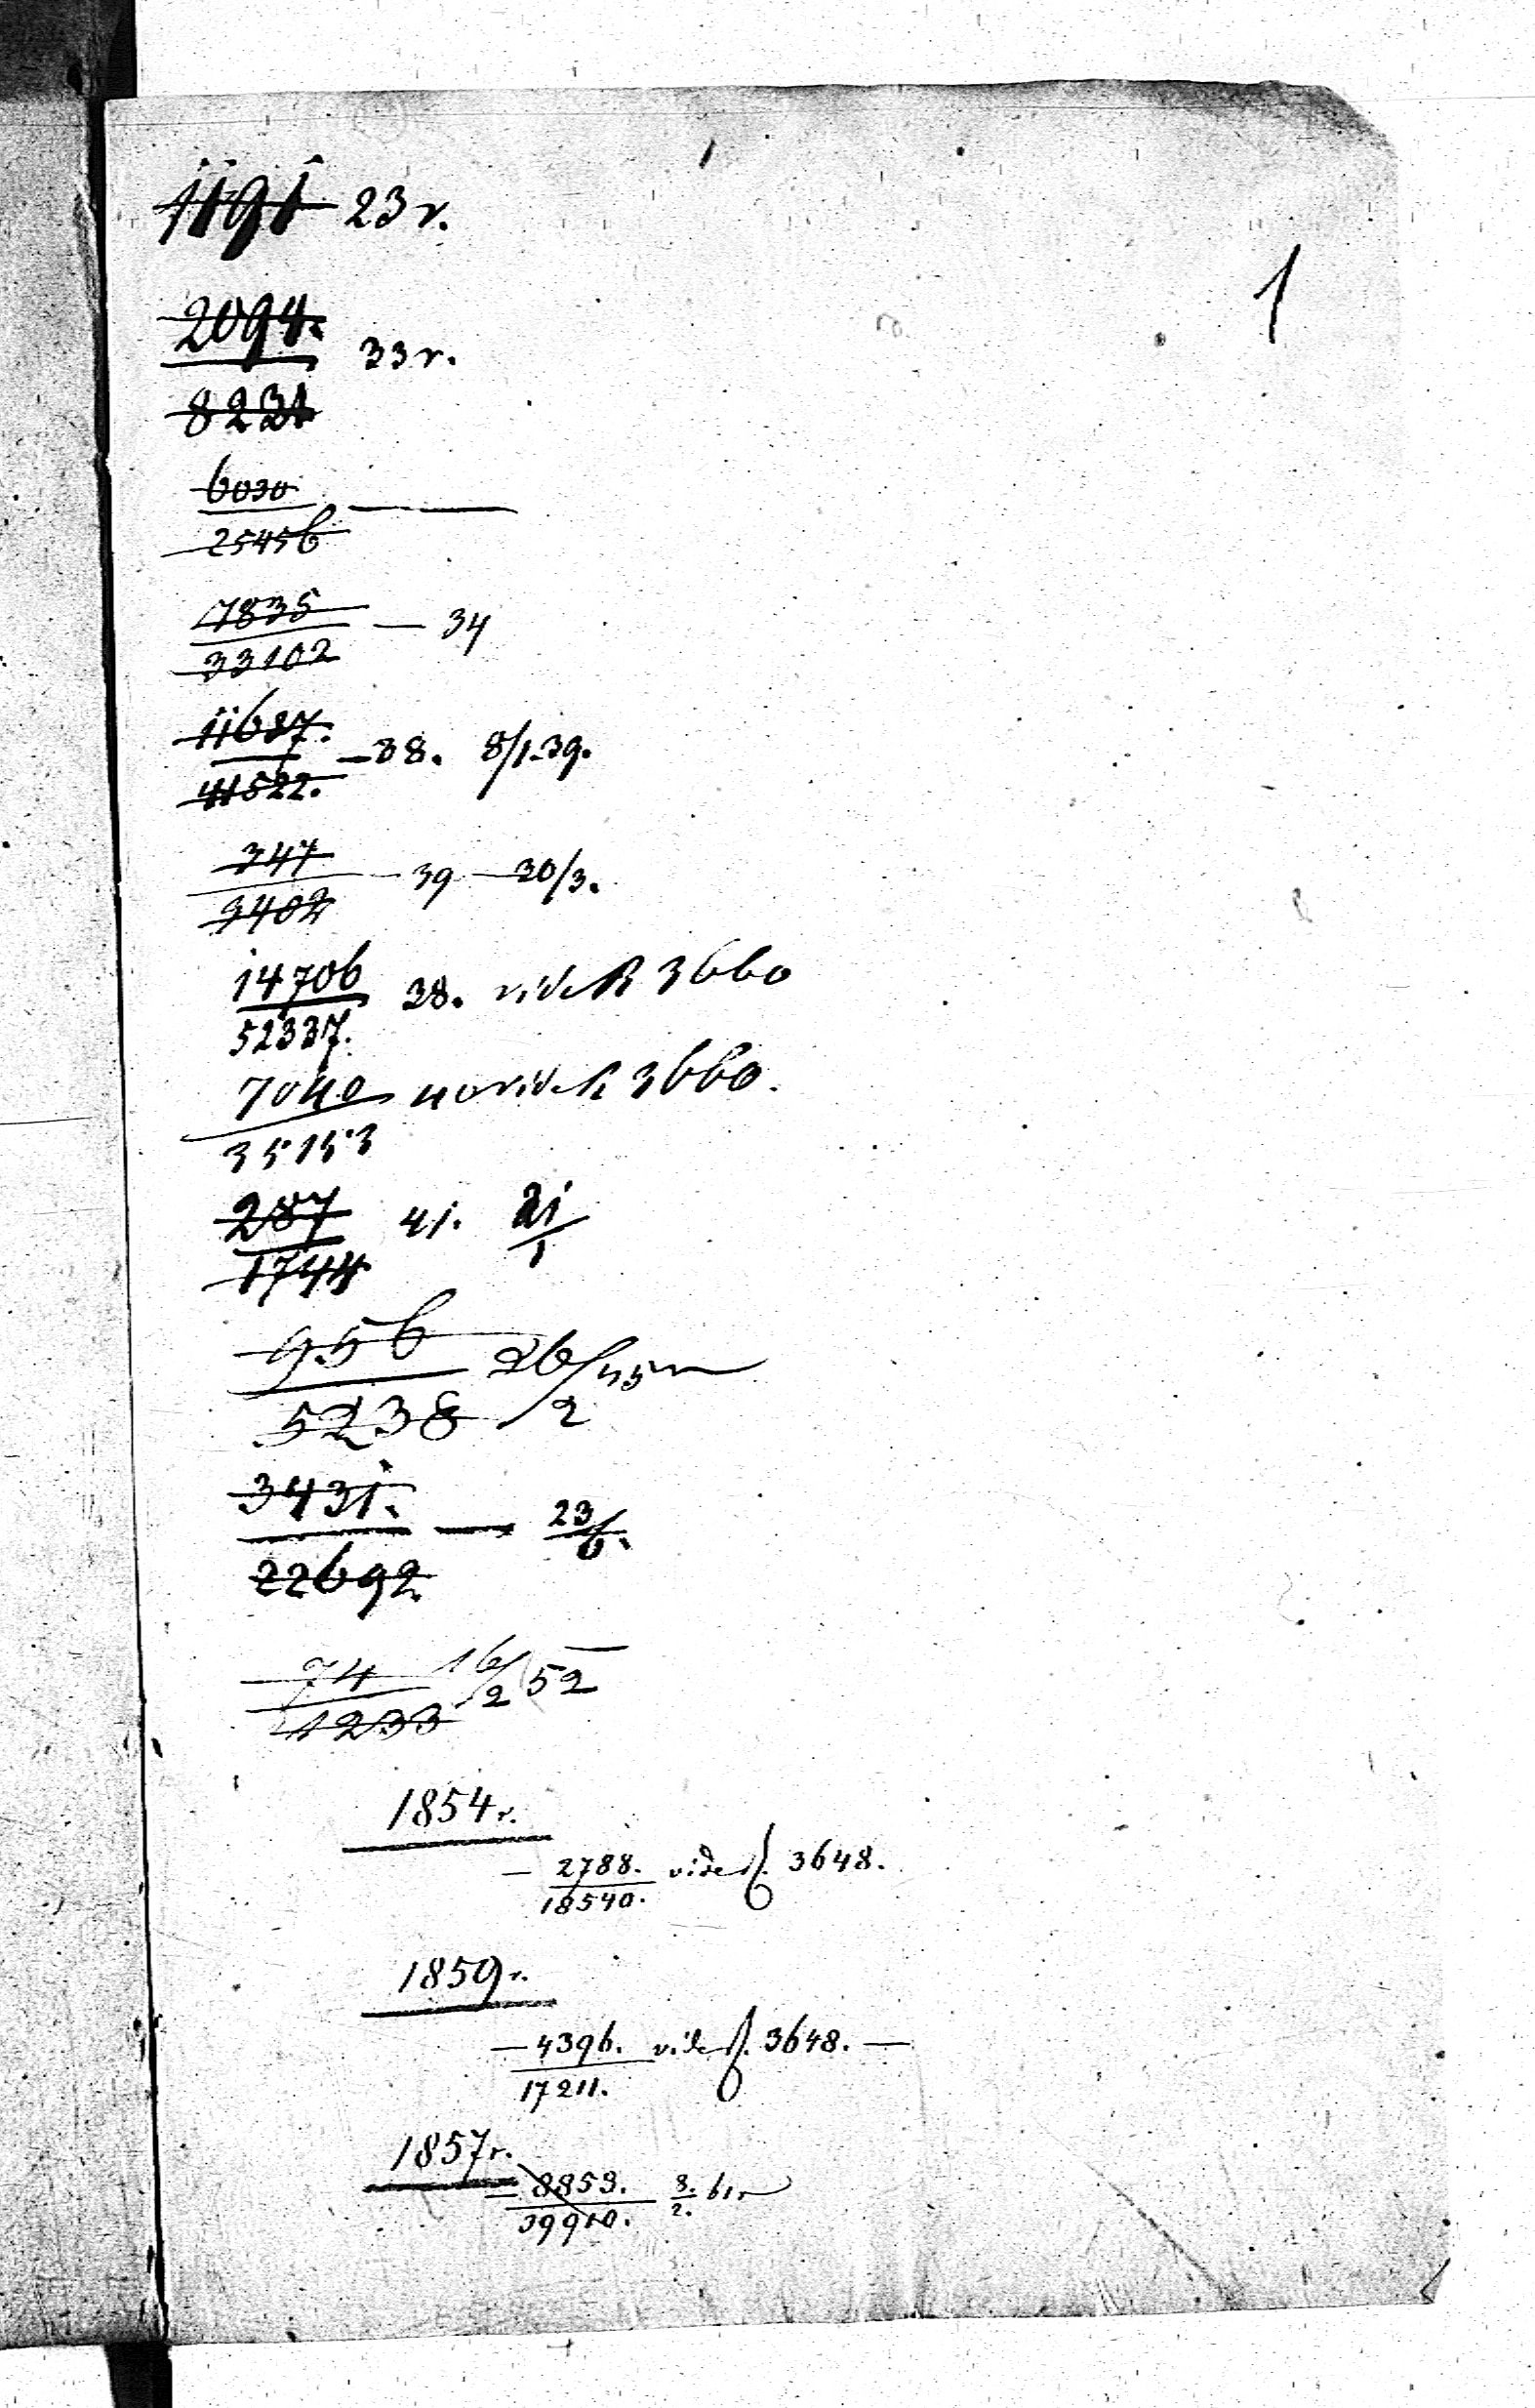 1191 23 r.
1
2094.
33 r.
8231
6030
25456
7835
— 34
33102
11687.
— 38. 8/1 39.
41522.
347
— 39 — 20/3.
3402
14706
38. vide R 3660
52337.
7040 40 vide R 3660.
35153
287 41. 21/1
1744
956
26/2 45 r
5238
3431.
— 23/6.
22692
74 16/2 52
1233
1854 r.
— 2788. vide f. 3648.
18540.
1859 r.
— 4396. vide f. 3648. —
17211.
1857 r.
— 8853. 8./2. 61 r
39910.